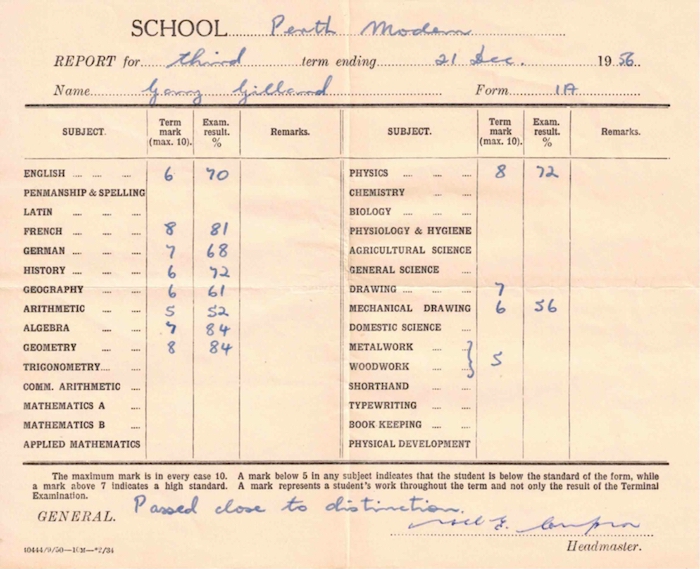 SCHOOL Perth Modern
REPORT for third term ending 21 Dec. 1956
Name Garry Gilland Form 1A
SUBJECT. Term mark (max. 10). Exam. result. % Remarks. SUBJECT. Term mark (max. 10). Exam. result. % Remarks.
ENGLISH 6 70 PHYSICS 8 72
PENMANSHIP & SPELLING CHEMISTRY
LATIN BIOLOGY
FRENCH 8 81 PHYSIOLOGY & HYGIENE
GERMAN 7 68 AGRICULTURAL SCIENCE
HISTORY 6 72 GENERAL SCIENCE
GEOGRAPHY 6 61 DRAWING 7
ARITHMETIC 5 52 MECHANICAL DRAWING 6 56
ALGEBRA 7 84 DOMESTIC SCIENCE
GEOMETRY 8 84 METALWORK
TRIGONOMETRY WOODWORK 5
COMM. ARITHMETIC SHORTHAND
MATHEMATICS A TYPEWRITING
MATHEMATICS B BOOK KEEPING
APPLIED MATHEMATICS PHYSICAL DEVELOPMENT
The maximum mark is in every case 10. A mark below 5 in any subject indicates that the student is below the standard of the form, while
a mark above 7 indicates a high standard. A mark represents a student's work throughout the term and not only the result of the Terminal
Examination.
GENERAL. Passed close to distinction.
Headmaster.